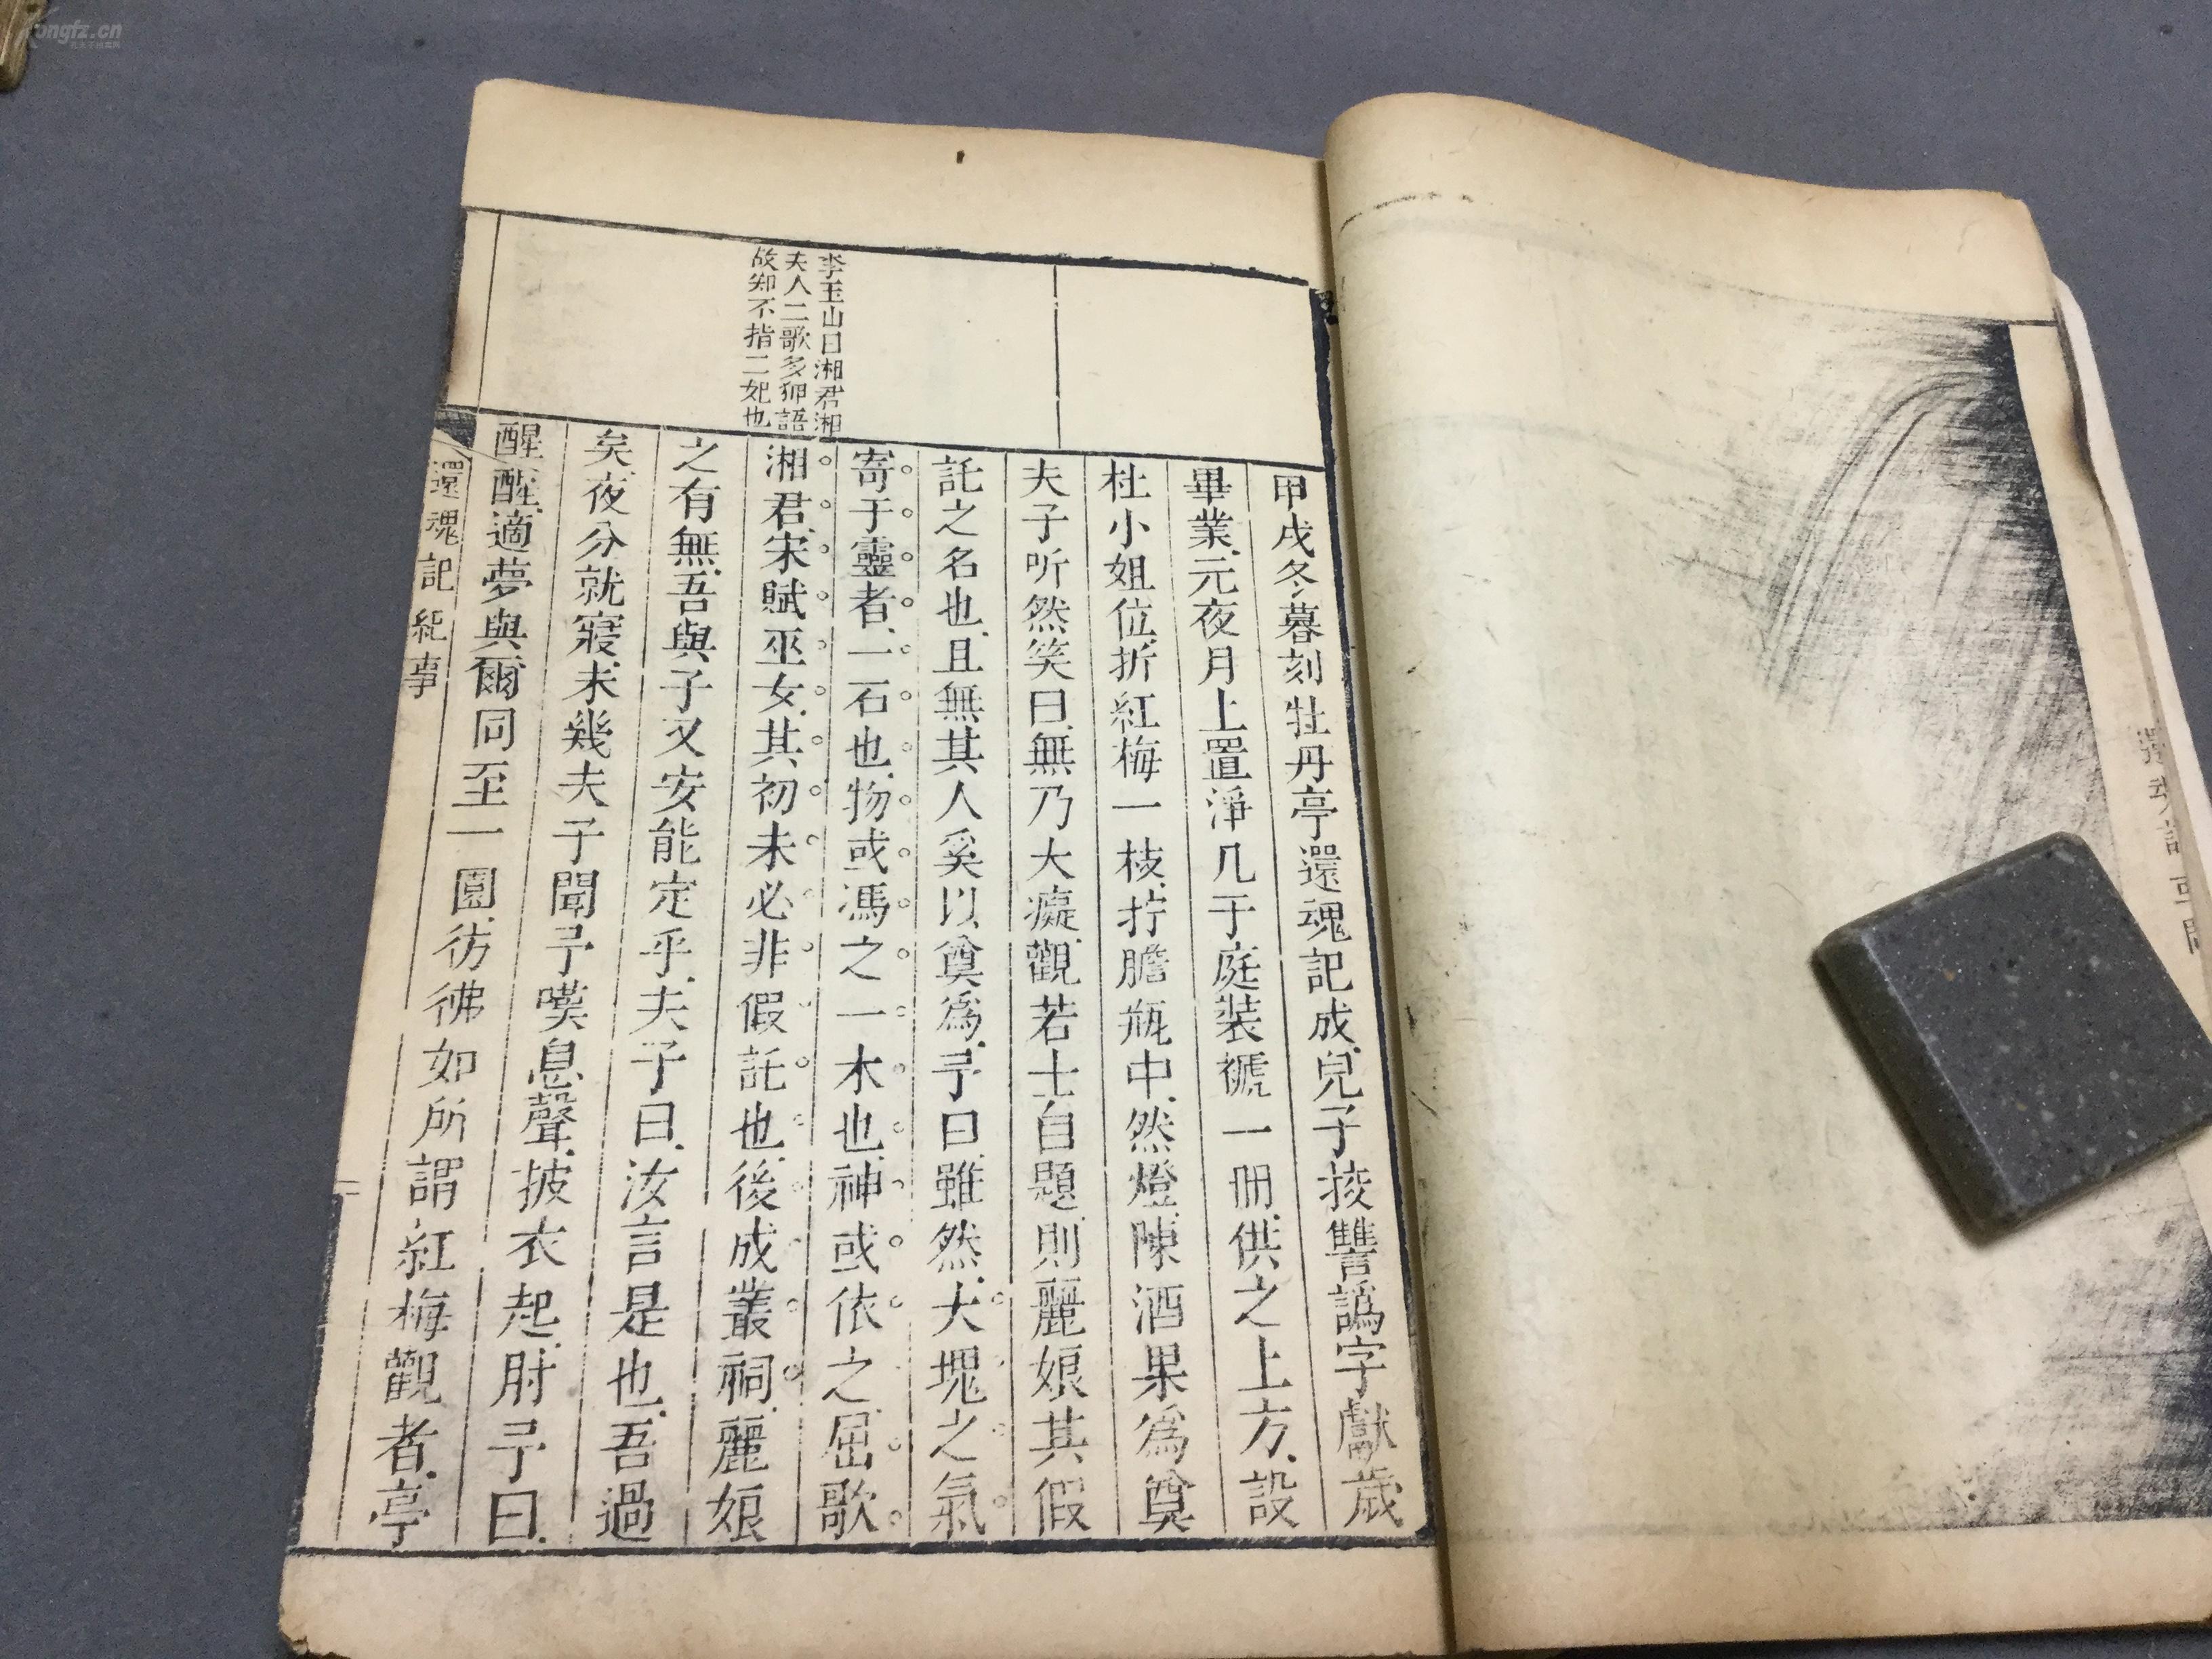 李玉山曰湘君湘
夫人二歌多狎語
故知不指二妃也
甲戌冬暮刻牡丹亭還魂記成兒子挍讐譌字獻歲
畢業元夜月上置淨几于庭裝褫一冊供之上方設
杜小姐位折紅梅一枝貯膽瓶中然燈陳酒果爲奠
夫子听然笑曰無乃大癡觀若士自題則麗娘其假
託之名也且無其人奚以奠爲予曰雖然大塊之氣
寄于靈者一石也物或馮之一木也神或依之屈歌
湘君宋賦巫女其初未必非假託也後成叢祠麗娘
之有無吾與子又安能定乎夫子曰汝言是也吾過
矣夜分就寢未幾夫子聞予嘆息聲披衣起肘予曰
醒醒適夢與爾同至一園彷彿如所謂紅梅觀者亭
還魂記 紀事
一
kongfz.cn